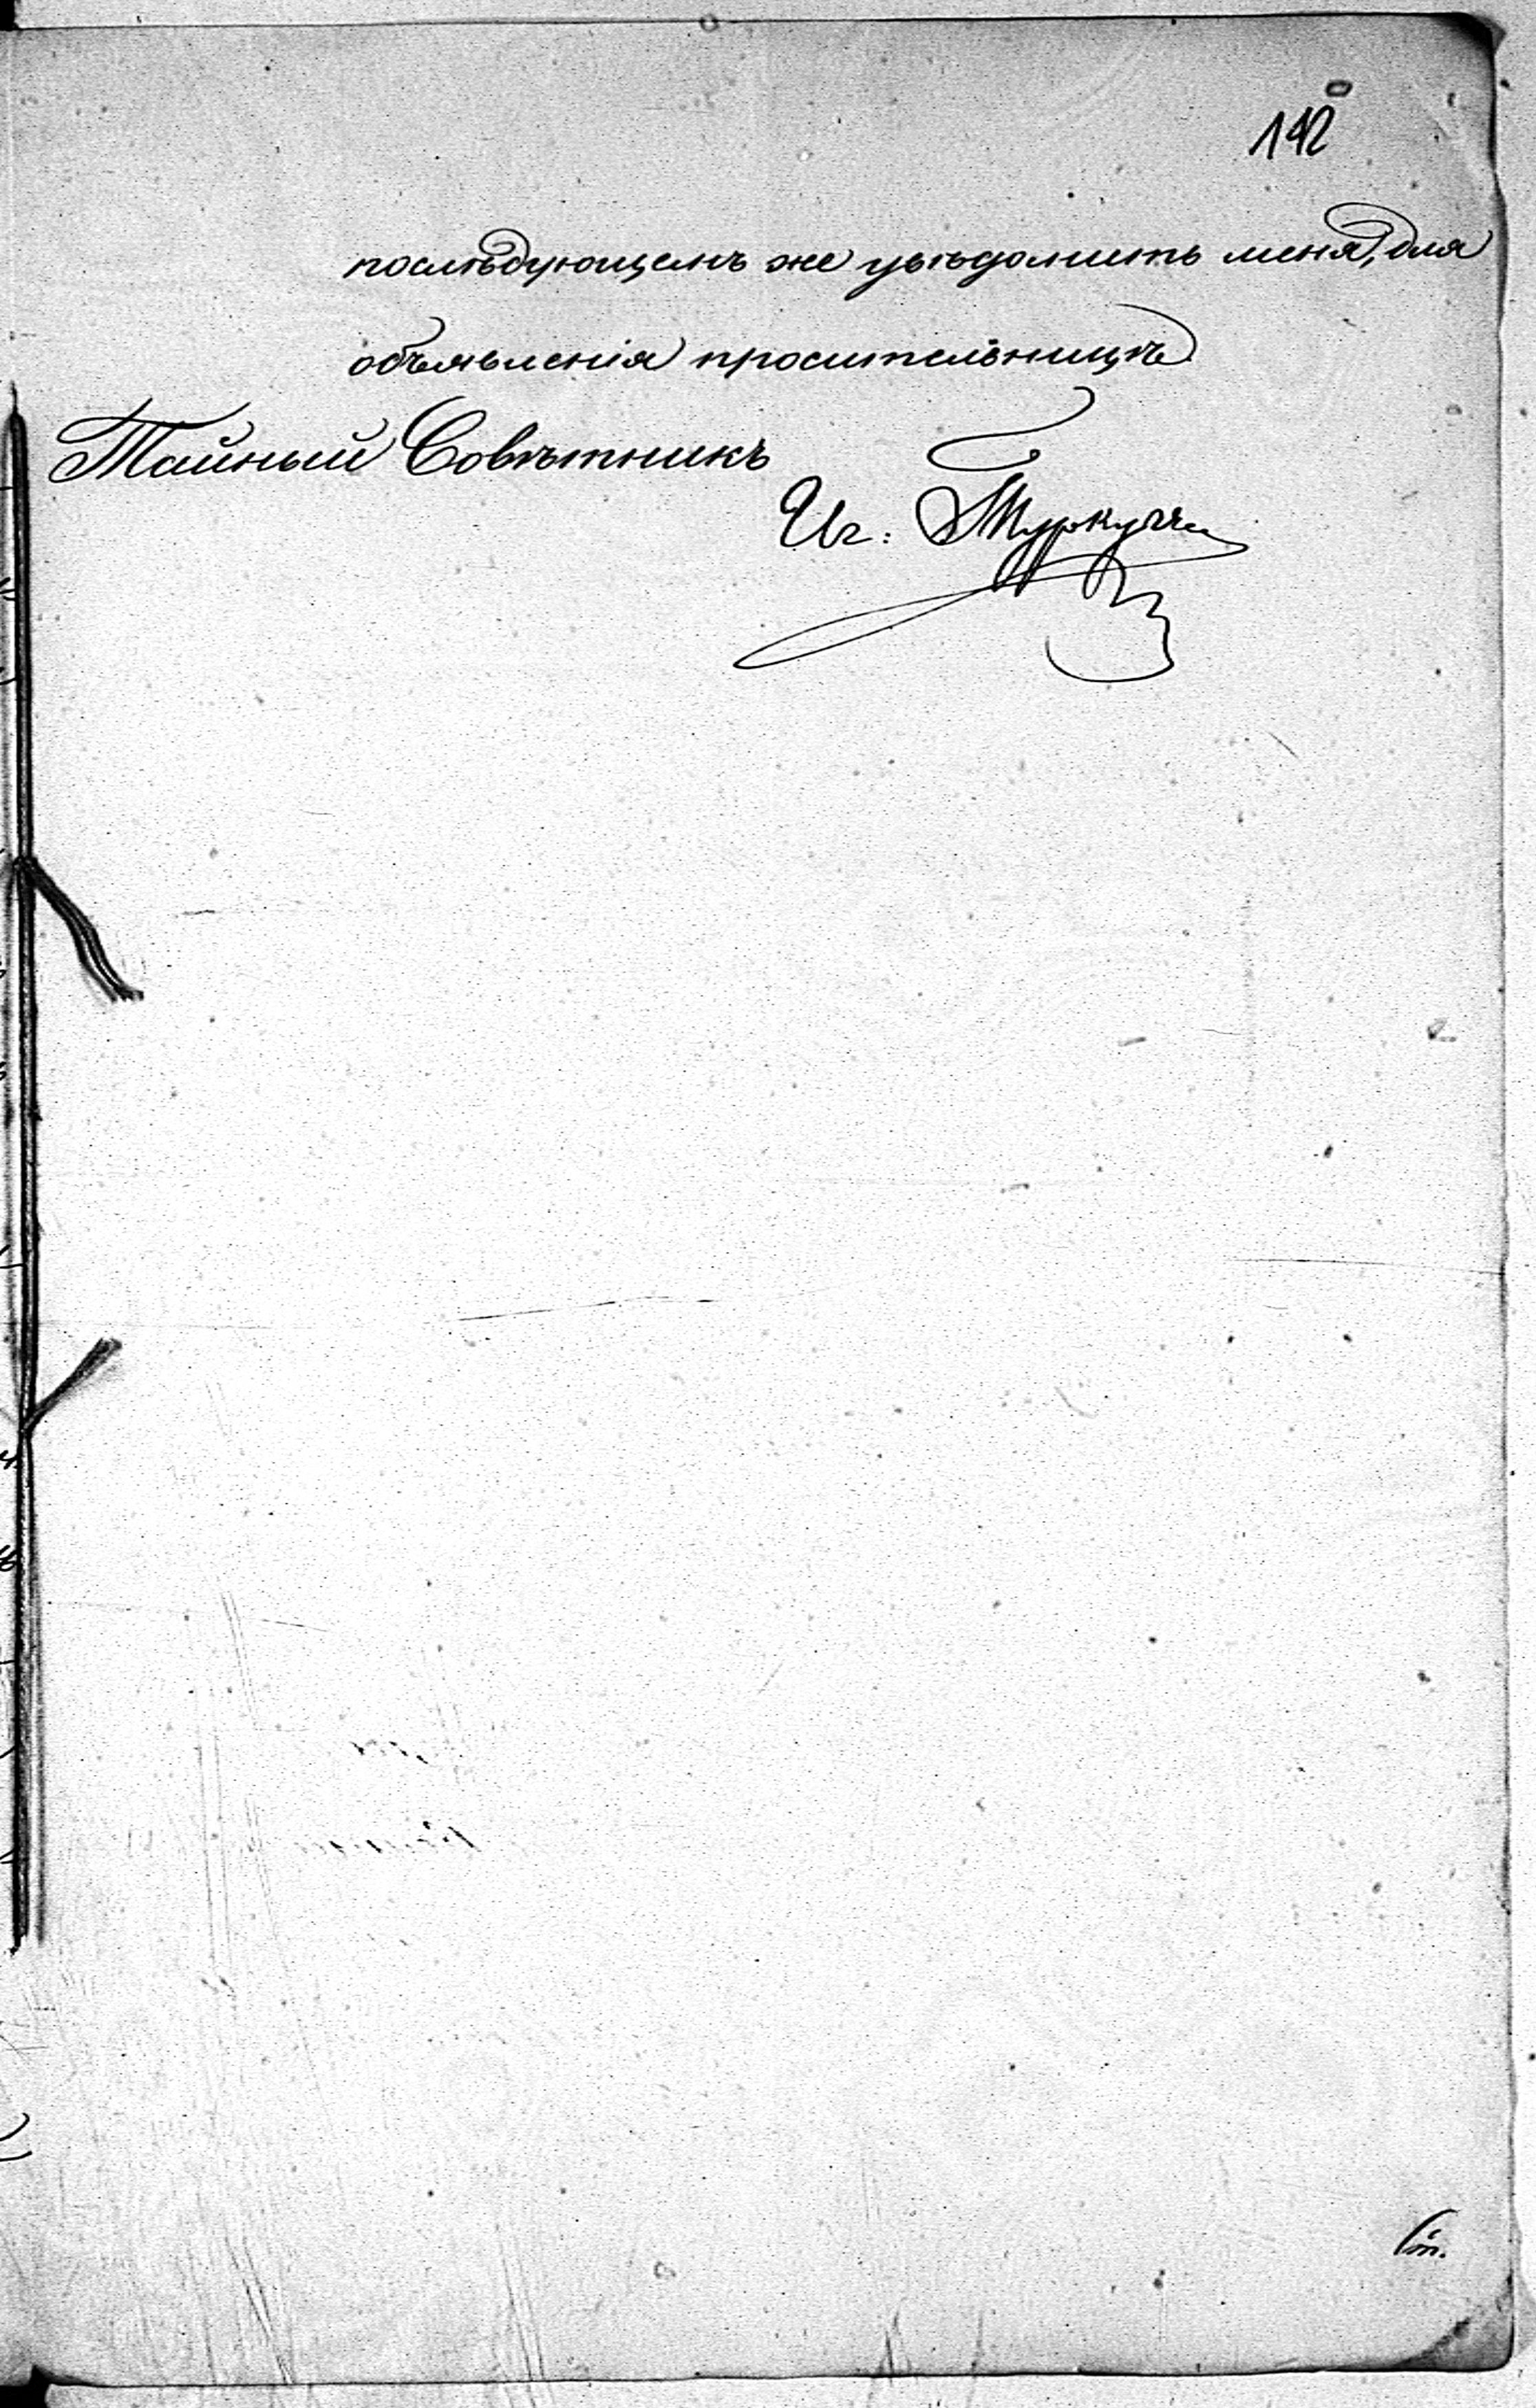 142
послѣдующемъ же увѣдомить меня, для
объявленія просительницѣ.
Тайный Совѣтникъ
Иг: Туркулъ